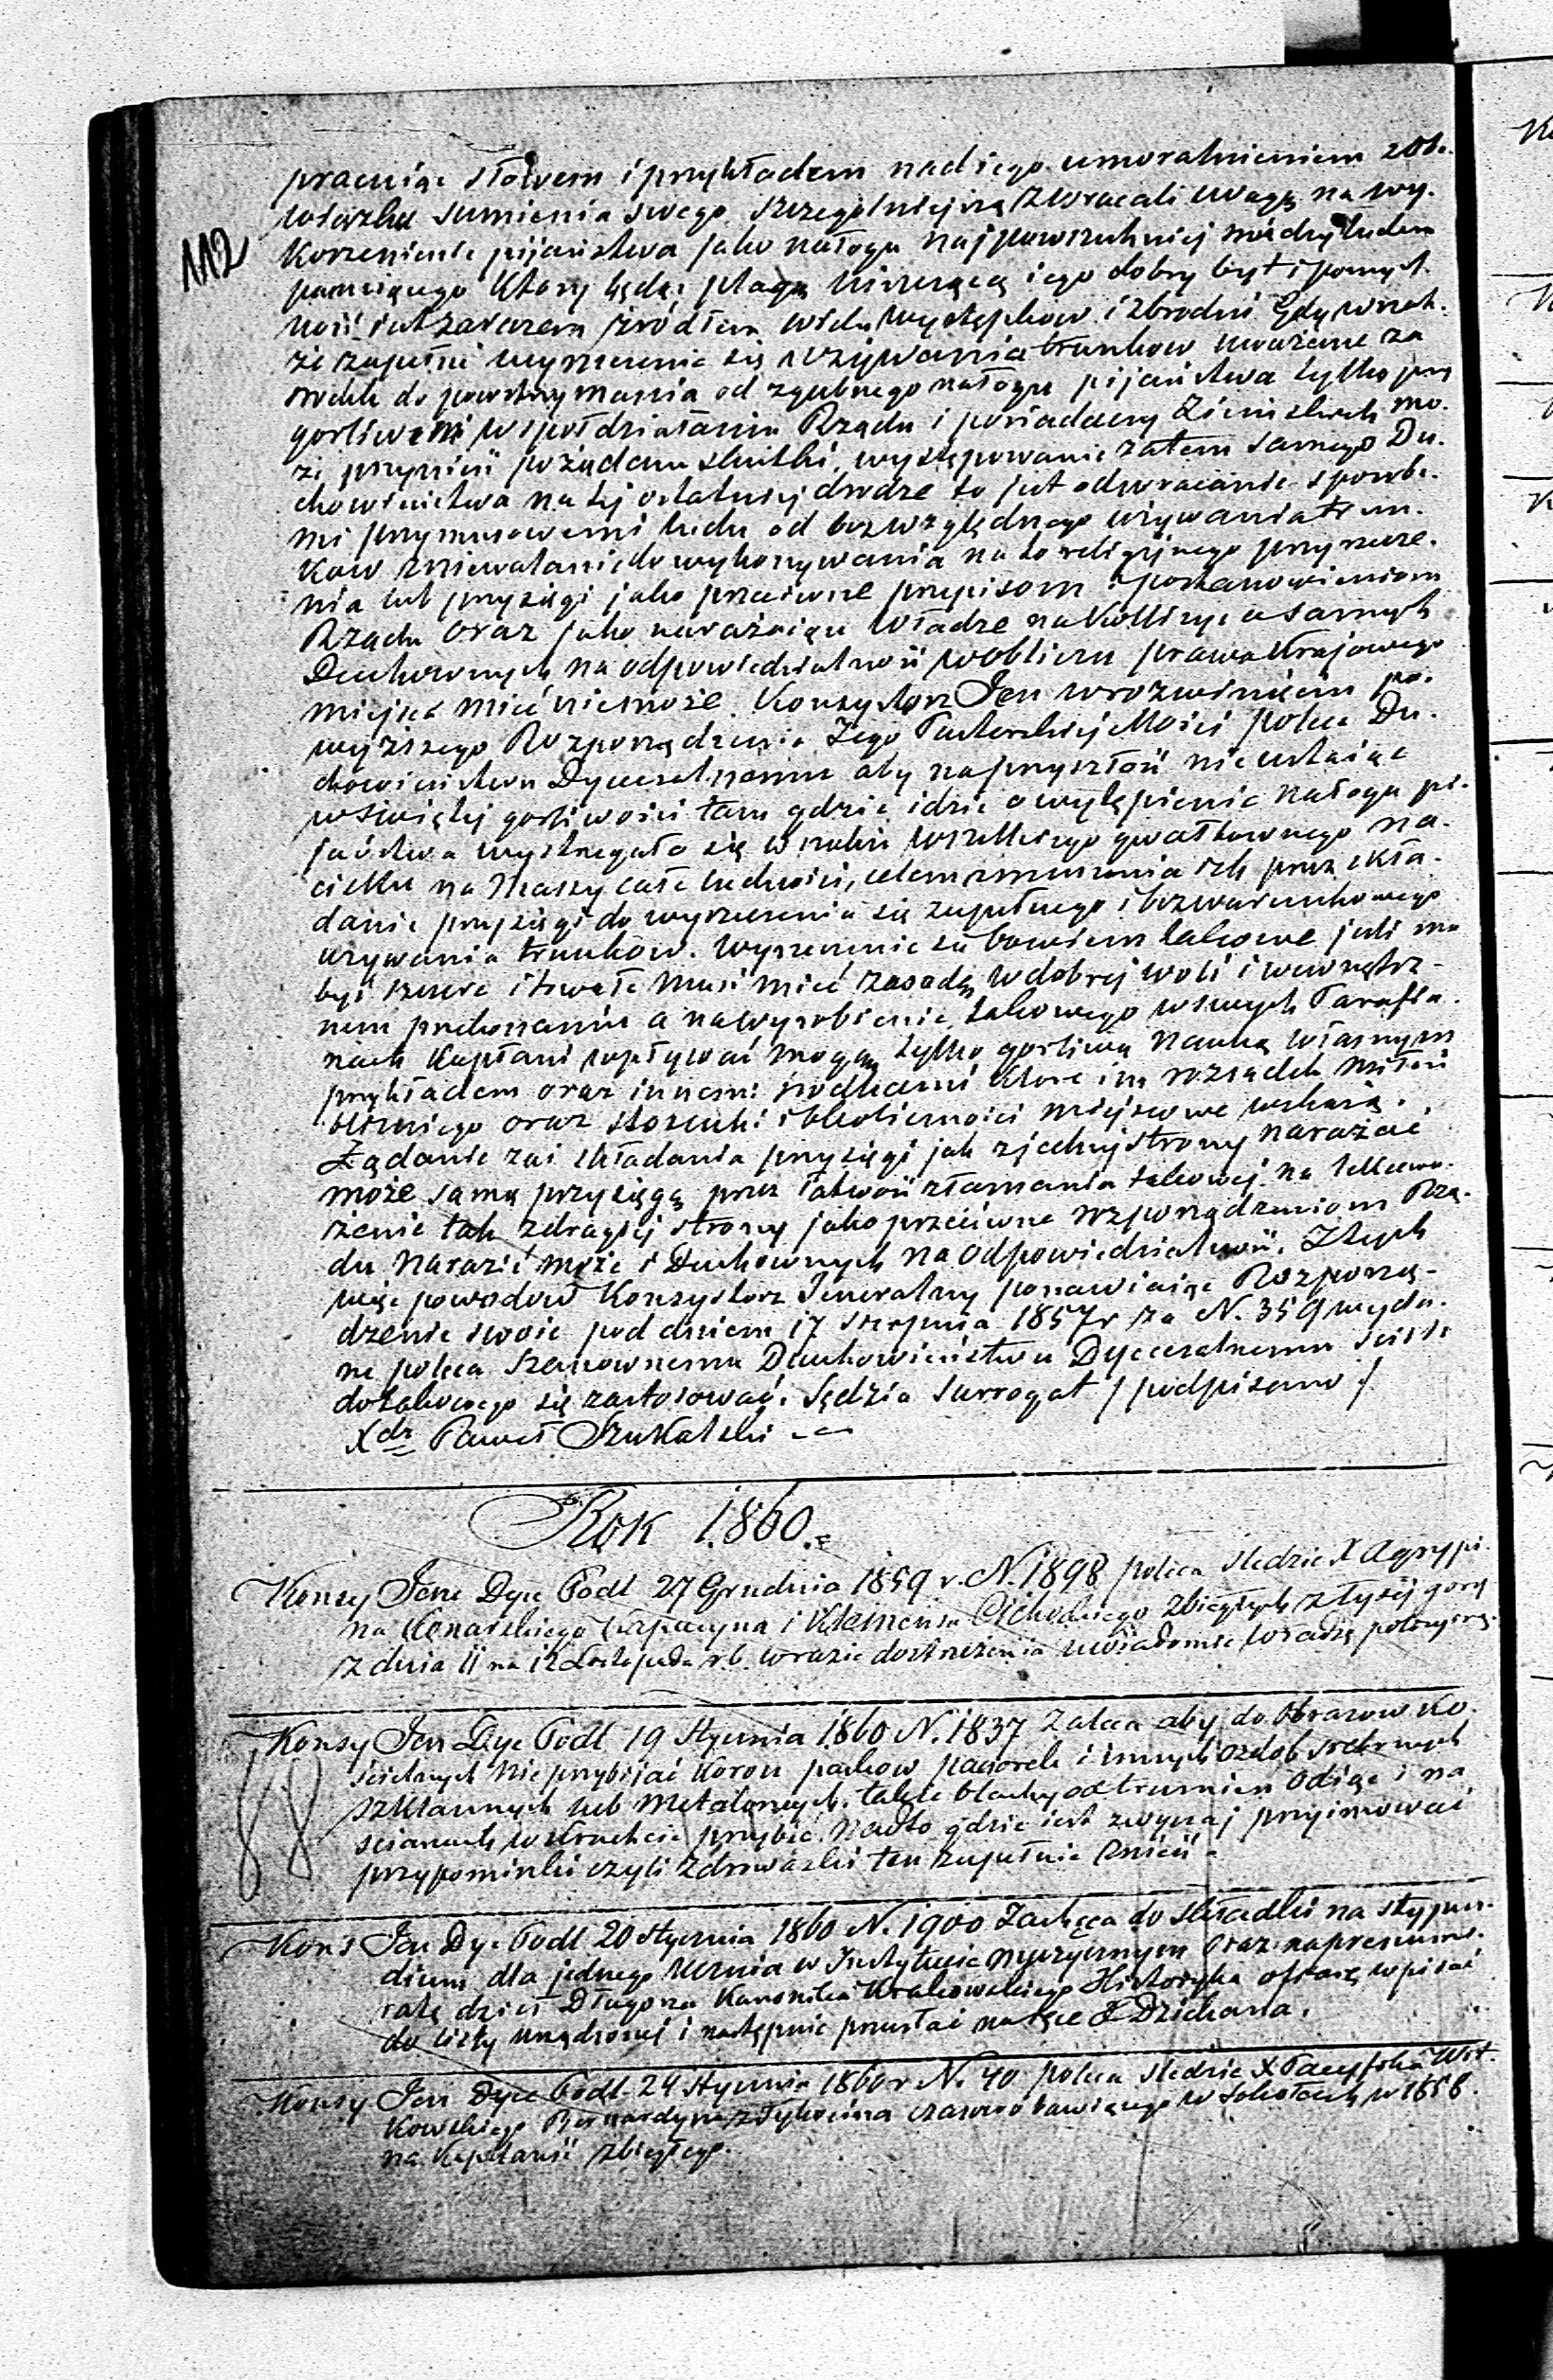 pracuiąc słowem i przykładem nad iego umoralnieniem z ob.
wiązku sumienia swego szczegolniejszą zwracali uwagę na wy.
112
korzenienie pijaństwa jako nałogu najpowszechniej między ludem
panuiącego który będąc plagą niszczącą iego dobry byt i pomyśl.
ność iest zarazem źródłem wielu występkow i zbrodni Gdy wszak.
że zupełne wyrzeczenie się używania trunkow uważane za
srodek do powstrzymania od zgubnego nałogu pijaństwa tylko przy
gorliwem wspołdziałaniu Rządu i posiadaczy Ziemskich mo.
że przynieść pożądane skutki, występowanie zatem samego Du.
chowieństwa na tej ostatniej drodze to jest odwracanie sposoba.
mi przymusowemi ludu od bezwzględnego używania trun.
kow zniewalanie do wykonywania na to religijnego przyrzecze.
nia lub przysięgi jako przeciwne przepisom i postanowieniom
Rządu oraz jako narażaiące Władze na kollizye a samych
Duchownych na odpowiedzialność w obliczu prawa Krajowego
miejsca mieć niemoże. Konsystorz Jen w rozwinięciu po.
wyższego Rozporządzenia Jego Pasterskiej Mości poleca Du.
chowieństwu Dyecezalnemu aby na przyszłość nie ustaiąc
w świętej gorliwości tam gdzie idzie o wytępienie nałogu pi.
jaństwa wystrzegało się w ruchu wszelkiego gwałtownego na.
cisku na massy całe ludności, celem zmuszenia ich przez skła.
danie przysięgi do wyrzeczenia się zupełnego i bezwarunkowego
używania trunków. Wyrzeczenie się bowiem takowe jeśli ma
być szczere i trwałe musi mieć zasadę w dobrej woli i wewnętrz-
nem przekonaniu a na wyrobienie takowego w swych Parafia.
nach Kapłani wpływać mogą tylko gorliwą nauką własnym
przykładem oraz innemi środkami które im rozsądek miłość
bliźniego oraz stosunki i okoliczności miejscowe wskażą.
Żądanie zaś składania przysięgi jak z jednej strony narażać
może samą przysięgę przez łatwość złamania takowej na lekcewa.
żenie tak z drugiej strony jako przeciwne rozporządzeniom Rzą.
du narazić może i Duchownych na odpowiedzialność. Z tych
więc powodów Konsystorz Jeneralny ponawiaiąc Rozporzą-
dzenie swoie pod dniem 17 Sierpnia 1857 r za N. 359 wyda.
ne poleca Szanownemu Duchowieństwu Dyecezalnemu ściśle
do takowego się zastosować. Sędzia Surrogat / podpisano /
X dr Paweł Szukalski
Rok 1860.
Konsy Jene Dyec Podl 27 Grudnia 1859 r. N. 1898 poleca sledzić X Agrypi.
na Konarskiego Kapucyna i Klemensa Cichockiego zbiegłych z łysej gory
z dnia 11 na 12 Listopada r.b. w razie dostrzeżenia uwiadomić Władzę policyjną.
Konsy Jen Dye Podl 19 Stycznia 1860 N. 1837 Zaleca aby do Obrazow Ko.
ścielnych nie przybijać Koron pasków paciorek i innych ozdob srebrnych
szklannych lub metalowych. także blachy od trumien odjąć i na
ścianach w kruchcie przybić. Nadto gdzie iest zwyczaj przyimować
przypominki czyli Zdrowaśki ten zupełnie znieść.
Kons Jen Dye Podl 20 Stycznia 1860 N. 1900 Zachęca do składki na stypen.
dium dla jednego Ucznia w Instytucie muzycznym oraz na prenume.
ratę dzieł Długosza Kanonika Krakowskiego Historyka ofiarę wpisać
do listy urządzonej i następnie przesłać na ręce X Dziekana.
Konsy Jen Dyec Podl 24 Stycznia 1860 r N. 40 poleca sledzić X Pacyfika Wit.
kowskiego Bernardyna z Tykocina czasowo bawiącego w Sokołach w 1858.
na Kapelanii zbiegłego.